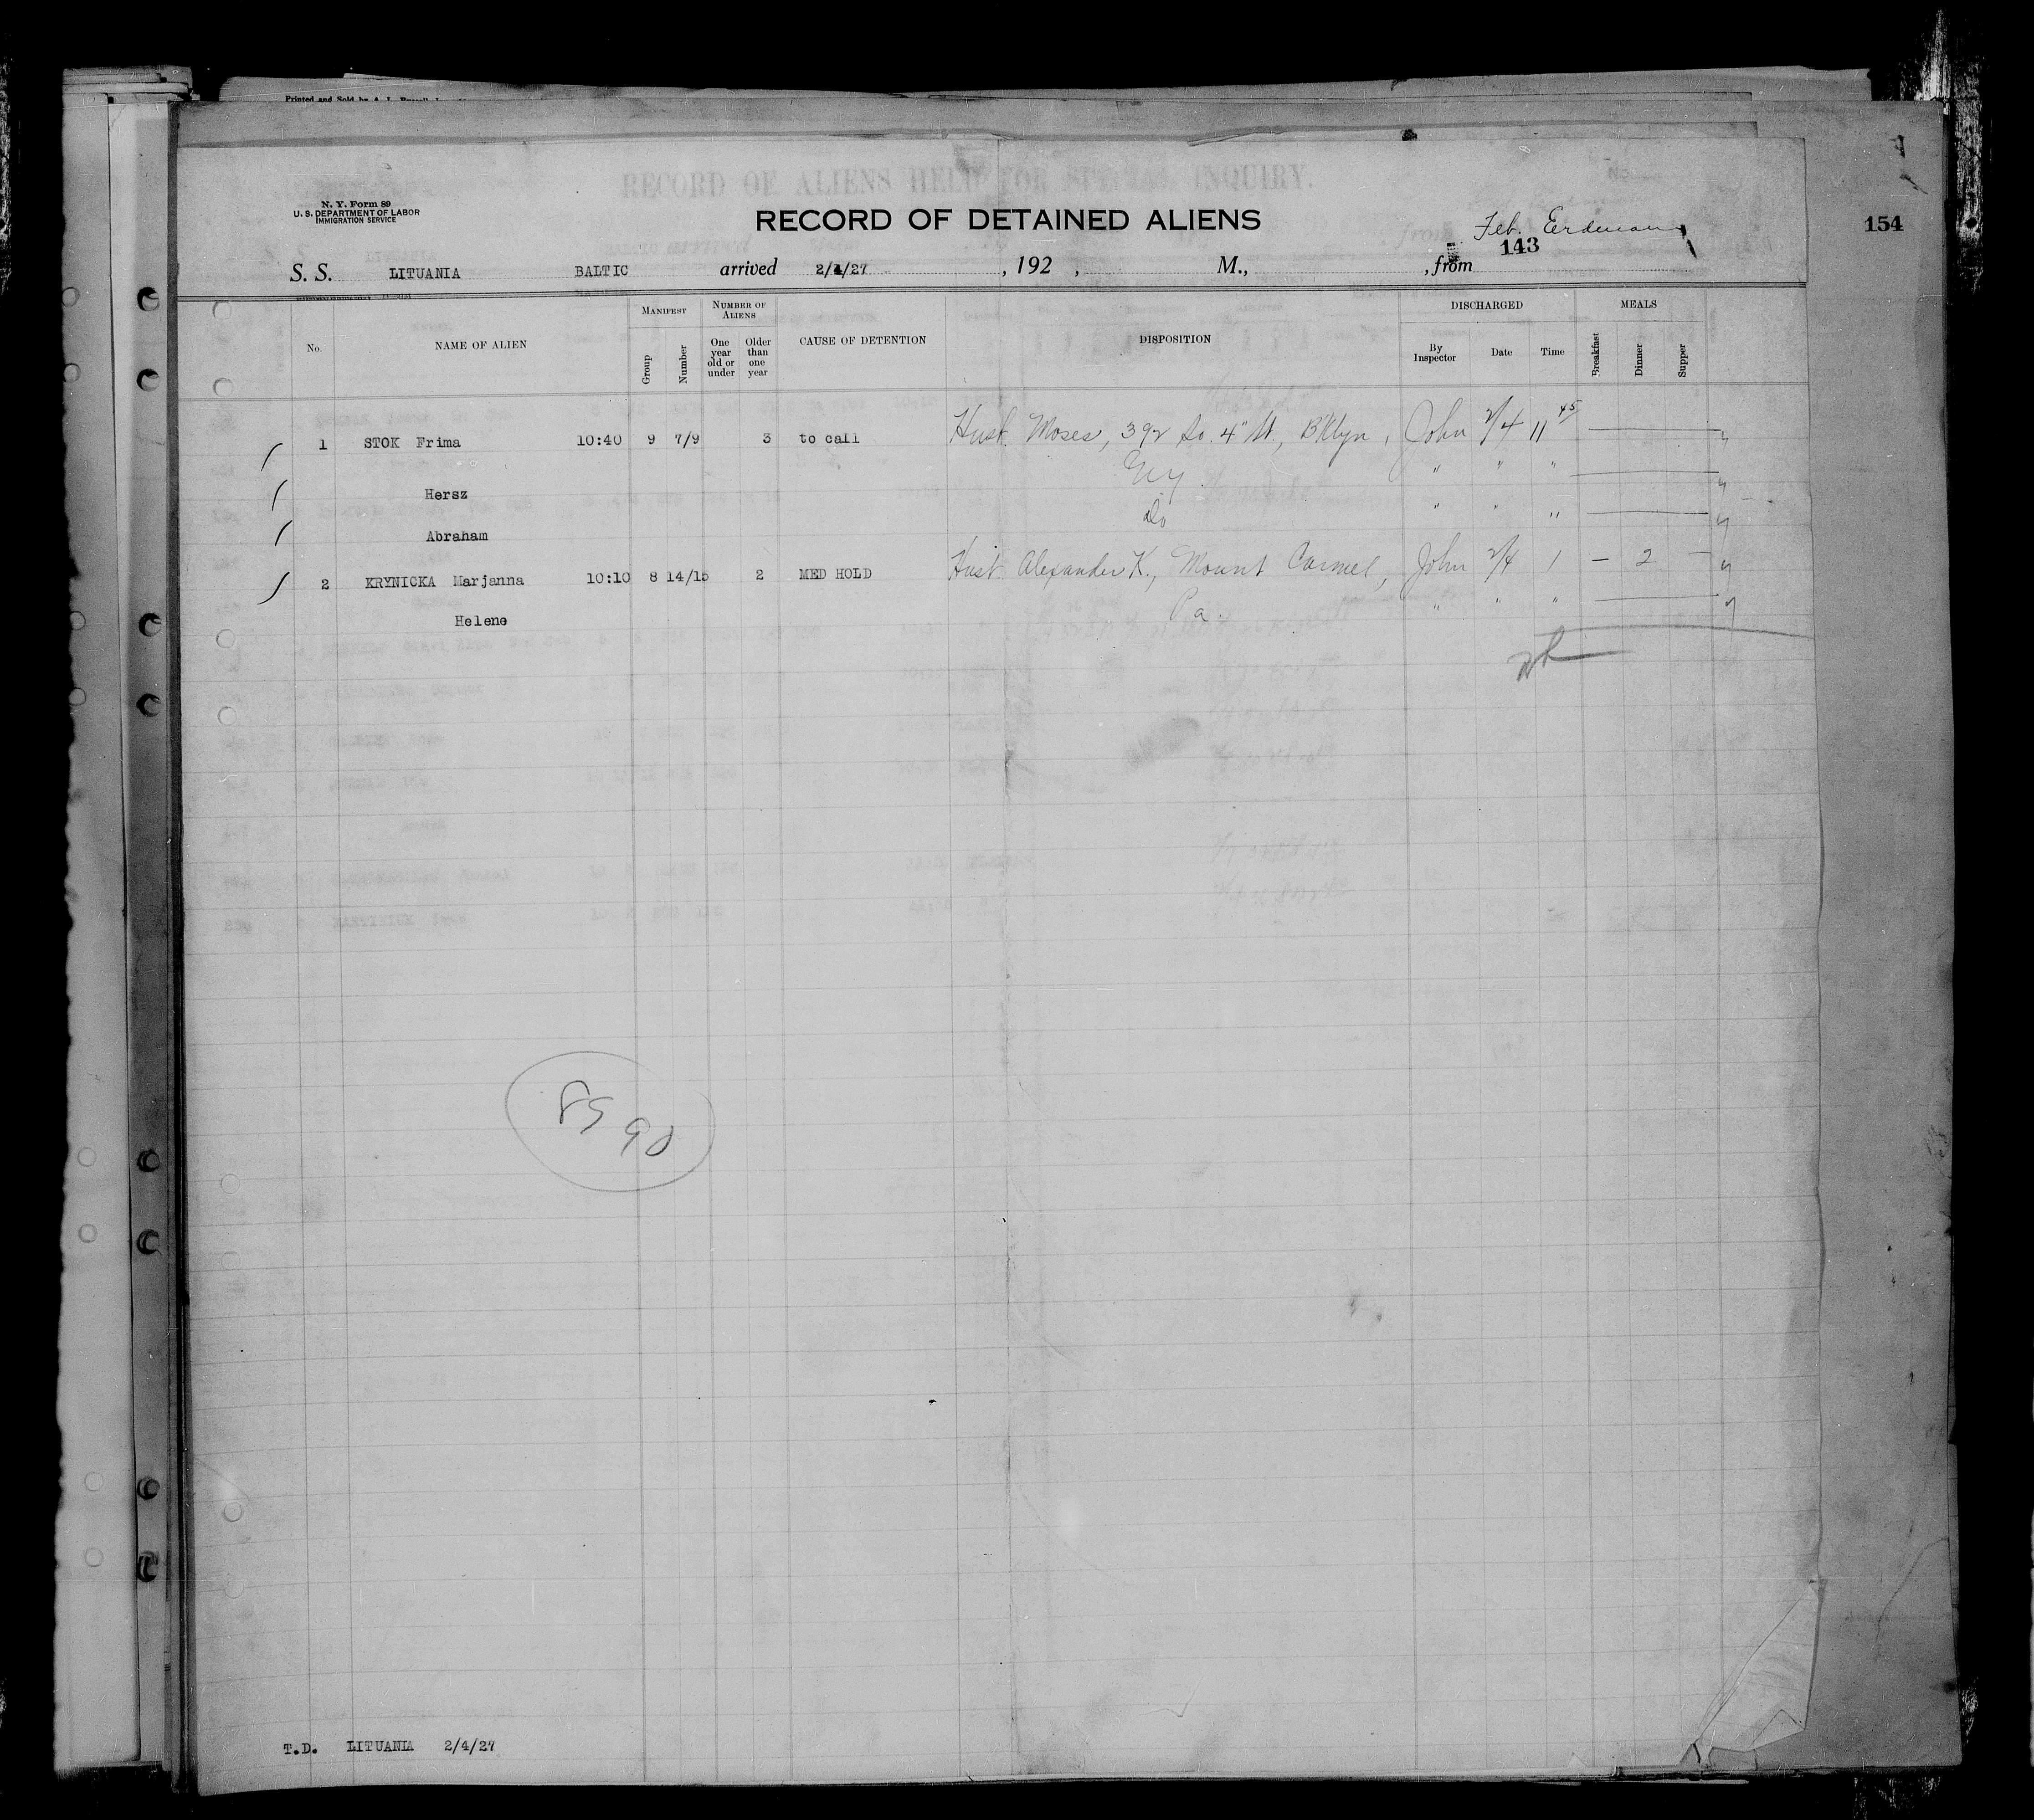 Printed and Sold by
RECORD OF ALIENS HELD FOR SPECIAL INQUIRY.
N. Y. Form 89
U. S. DEPARTMENT OF LABOR
IMMIGRATION SERVICE
RECORD OF DETAINED ALIENS
Feb. Erdmann
143
154
S. S. LITUANIA BALTIC arrived 2/4/27 , 192 , M., , from
No. NAME OF ALIEN MANIFEST Group Number NUMBER OF ALIENS One year old or under Older than one year CAUSE OF DETENTION DISPOSITION DISCHARGED By Inspector Date Time MEALS Breakfast Dinner Supper
1 STOK Frima 10:40 9 7/9 3 to call Husb. Moses, 392 So. 4" St., B'klyn, John 2/4 11 45
Hersz N.Y. " " "
Abraham Do " " "
2 KRYNICKA Marjanna 10:10 8 14/15 2 MED HOLD Husb. Alexander K., Mount Carmel, John 2/4 1 — 2 —
Helene Pa. " " "
8590
T.D. LITUANIA 2/4/27